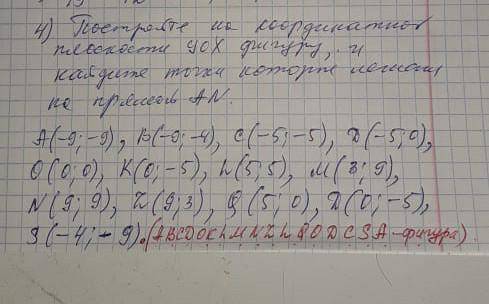 4) Постройте на координатной
плоскости УОХ фигуру, и
найдите точки которые лежат
на прямой AN.
A(-9;-9), B(-9;-4), C(-5;-5), D(-5;0),
O(0;0), K(0;-5), L(5;5), M(3;9),
N(9;9), Z(9;3), Q(5;0), D(0;-5),
S(-4;-9). (ABCDOKLMNZLQODCSA-фигура)